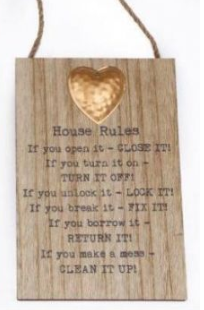 House Rules
If you open it - CLOSE IT!
If you turn it on -
TURN IT OFF!
If you unlock it - LOCK IT!
If you break it - FIX IT!
If you borrow it -
RETURN IT!
If you make a mess -
CLEAN IT UP!